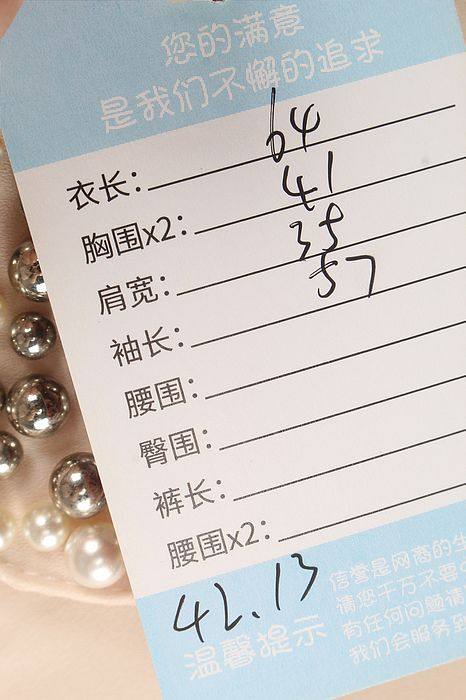 您的满意
是我们不懈的追求
衣长: 64
胸围x2: 41
肩宽: 35
袖长: 57
腰围:
臀围:
裤长:
腰围x2:
42.13
温馨提示
信誉是网商的生
请您千万不要
有任何问题请
我们会服务到